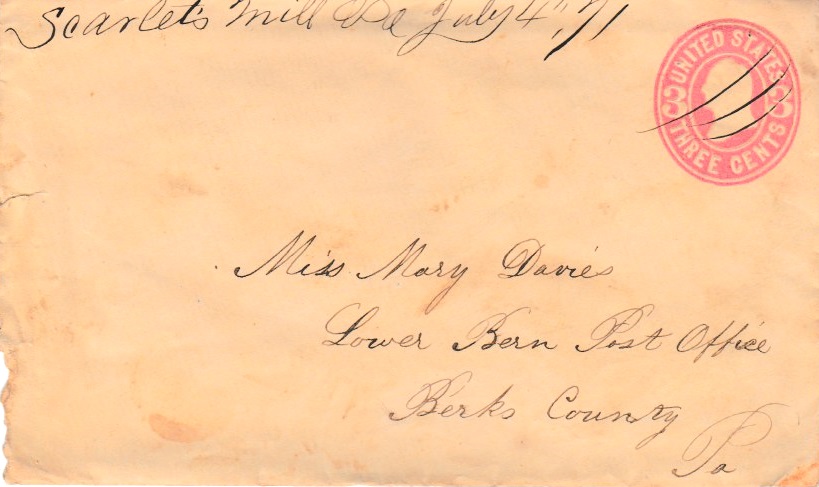 Scarlets Mill Pa July 4, 71
UNITED STATES
3 3
THREE CENTS
Miss Mary Davies
Lower Bern Post Office
Berks County
Pa